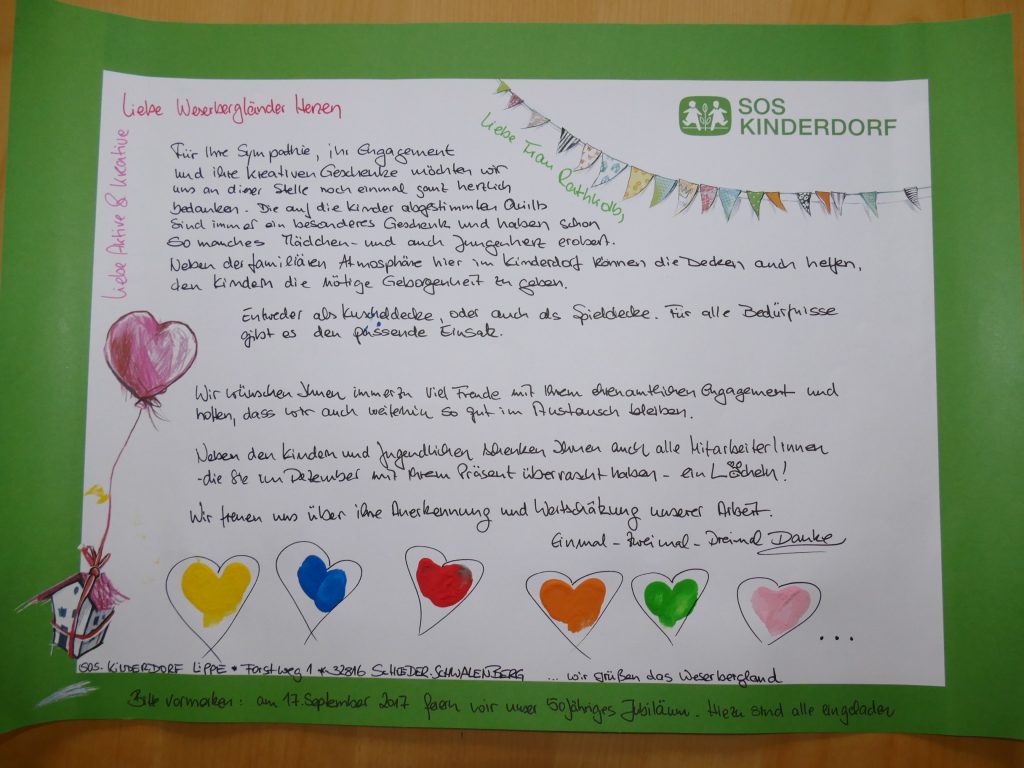 Liebe Weserbergländer Herzen
SOS
KINDERDORF
Liebe Frau Rathkolb,
Liebe Aktive & Kreative
Für Ihre Sympathie, ihr Engagement
und ihre kreativen Geschenke möchten wir
uns an dieser Stelle noch einmal ganz herzlich
bedanken. Die auf die Kinder abgestimmten Quilts
sind immer ein besonderes Geschenk und haben schon
so manches Mädchen- und auch Jungenherz erobert.
Neben der familiären Atmosphäre hier im Kinderdorf können die Decken auch helfen,
den Kindern die nötige Geborgenheit zu geben.
Entweder als Kuscheldecke, oder auch als Spieldecke. Für alle Bedürfnisse
gibt es den passende Einsatz.
Wir wünschen Ihnen immerzu viel Freude mit Ihrem ehrenamtlichen Engagement und
hoffen, dass wir auch weiterhin so gut im Austausch bleiben.
Neben den Kindern und Jugendlichen schenken Ihnen auch alle Mitarbeiter/innen
- die Sie im Dezember mit Ihrem Präsent überrascht haben - ein Lächeln!
Wir freuen uns über ihre Anerkennung und Wertschätzung unserer Arbeit.
Einmal - Zweimal - Dreimal Danke
SOS. KINDERDORF LIPPE * Forstweg 1 * 32816 SCHIEDER. SCHWALENBERG ... wir grüßen das Weserbergland
Bitte vormerken: am 17. September 2017 feiern wir unser 50 jähriges Jubiläum. Hierzu sind alle eingeladen